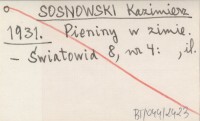 SOSNOWSKI Kazimierz
1931. Pieniny w zimie.
– Światowid 8, nr 4: , il.